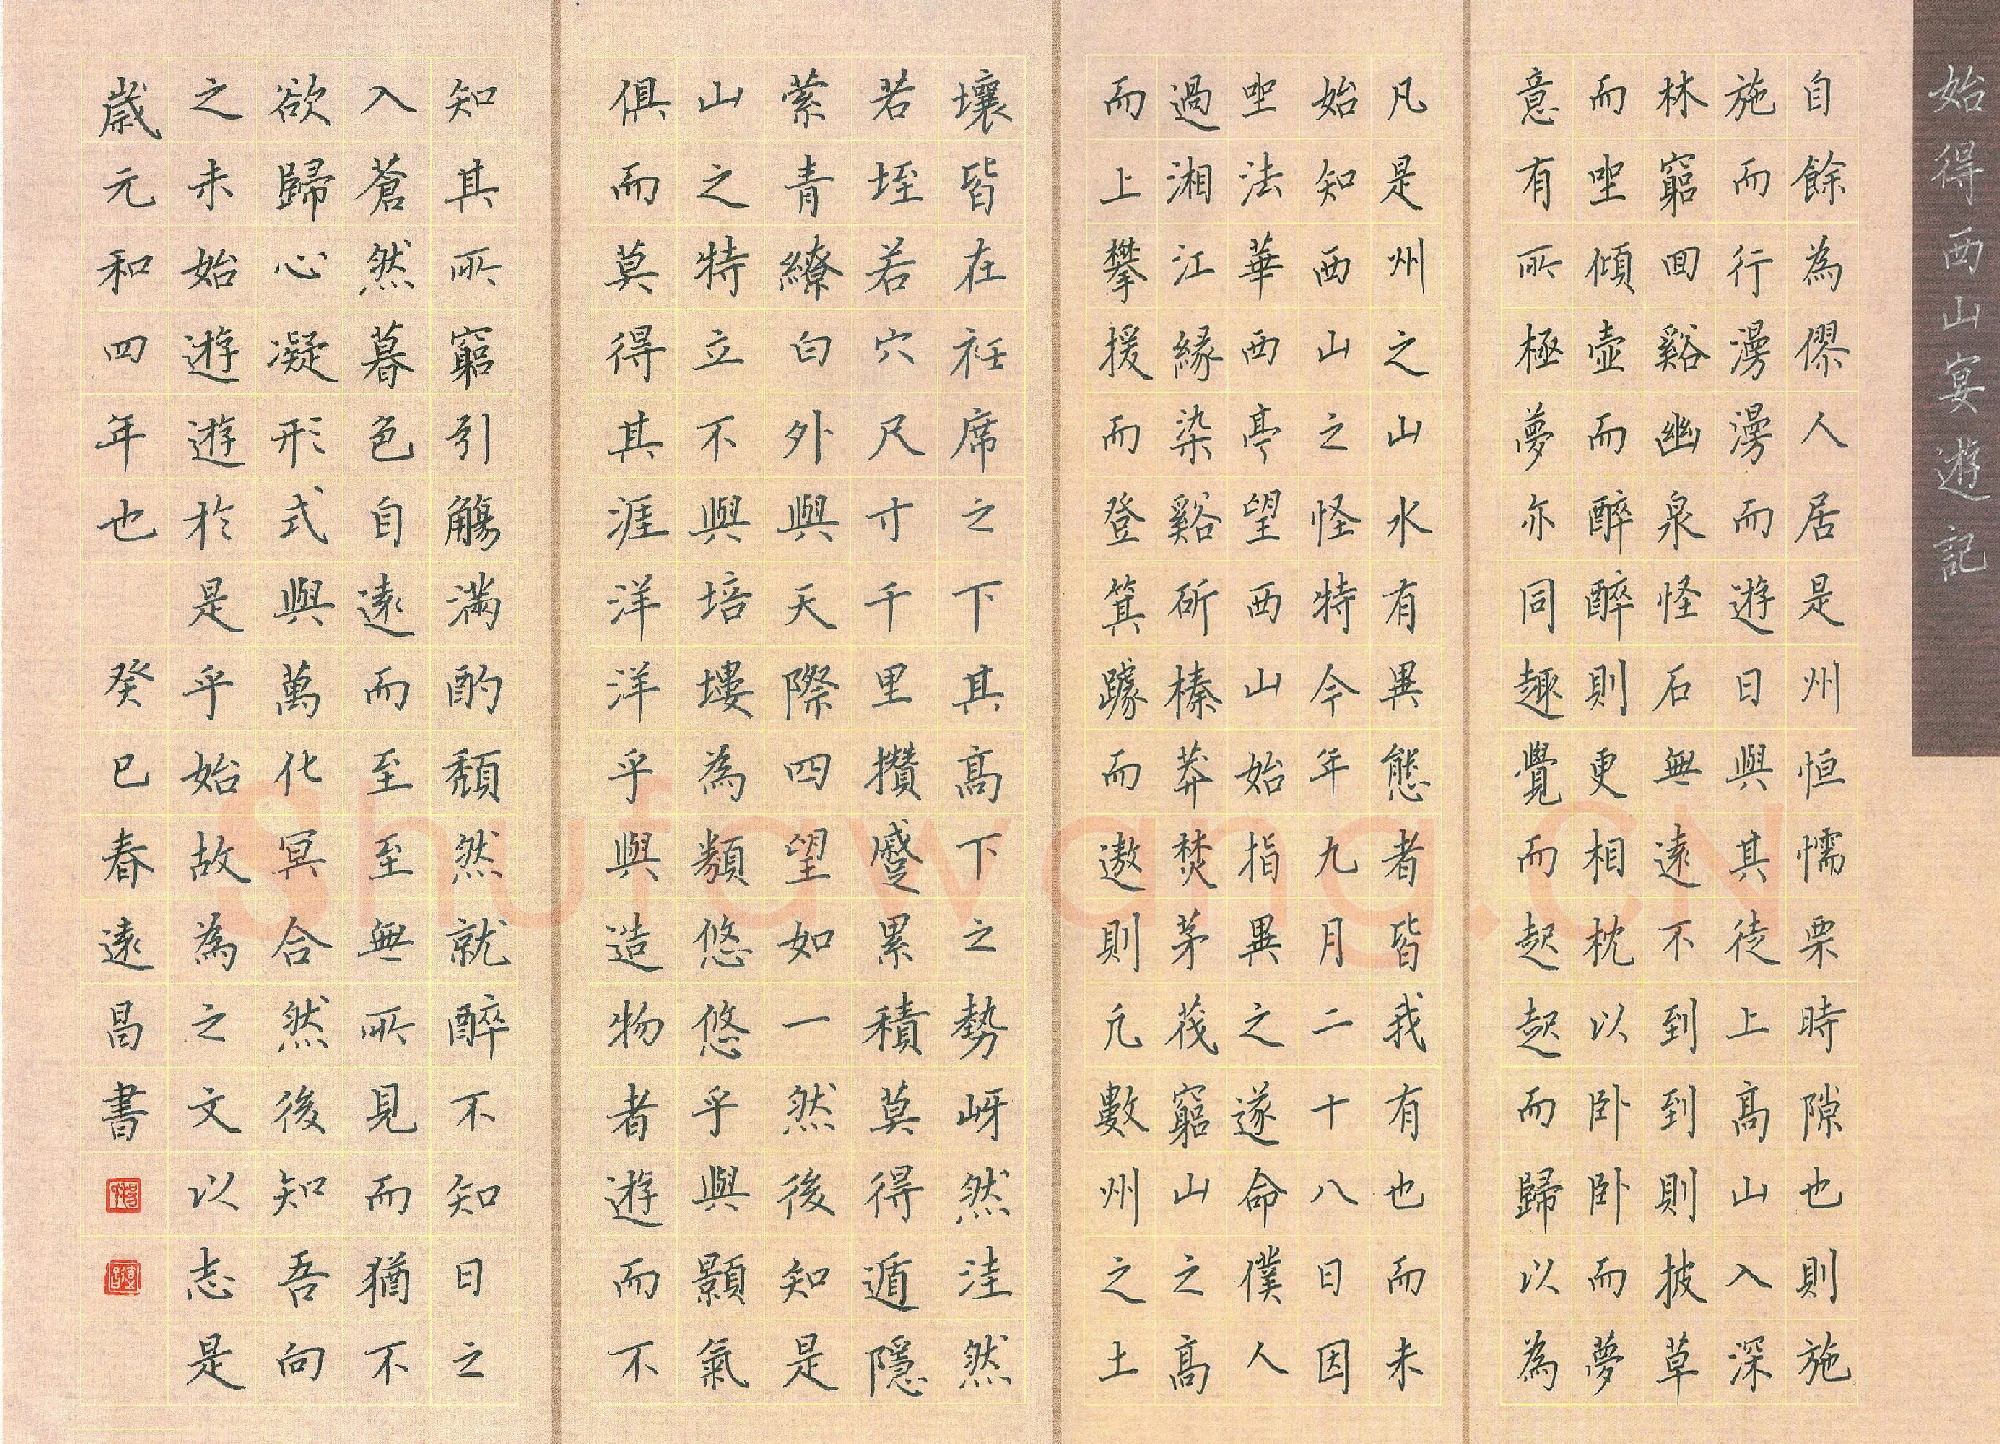 始得西山宴遊記
自餘為僇人居是州恒惴栗時隙也則施
施而行漫漫而遊日與其徒上高山入深
林窮回谿幽泉怪石無遠不到到則披草
而坐傾壺而醉醉則更相枕以卧卧而夢
意有所極夢亦同趣覺而起起而歸以為
凡是州之山水有異態者皆我有也而未
始知西山之怪特今年九月二十八日因
坐法華西亭望西山始指異之遂命僕人
過湘江緣染谿斫榛莽焚茅茷窮山之高
而上攀援而登箕踞而遨則凡數州之土
壤皆在衽席之下其高下之勢岈然洼然
若垤若穴尺寸千里攢蹙累積莫得遁隱
縈青繚白外與天際四望如一然後知是
山之特立不與培塿為類悠悠乎與顥氣
俱而莫得其涯洋洋乎與造物者遊而不
知其所窮引觴滿酌頹然就醉不知日之
入蒼然暮色自遠而至至無所見而猶不
欲歸心凝形式與萬化冥合然後知吾向
之未始遊遊於是乎始故為之文以志是
歲元和四年也 癸巳春遠昌書
Shufawang.CN